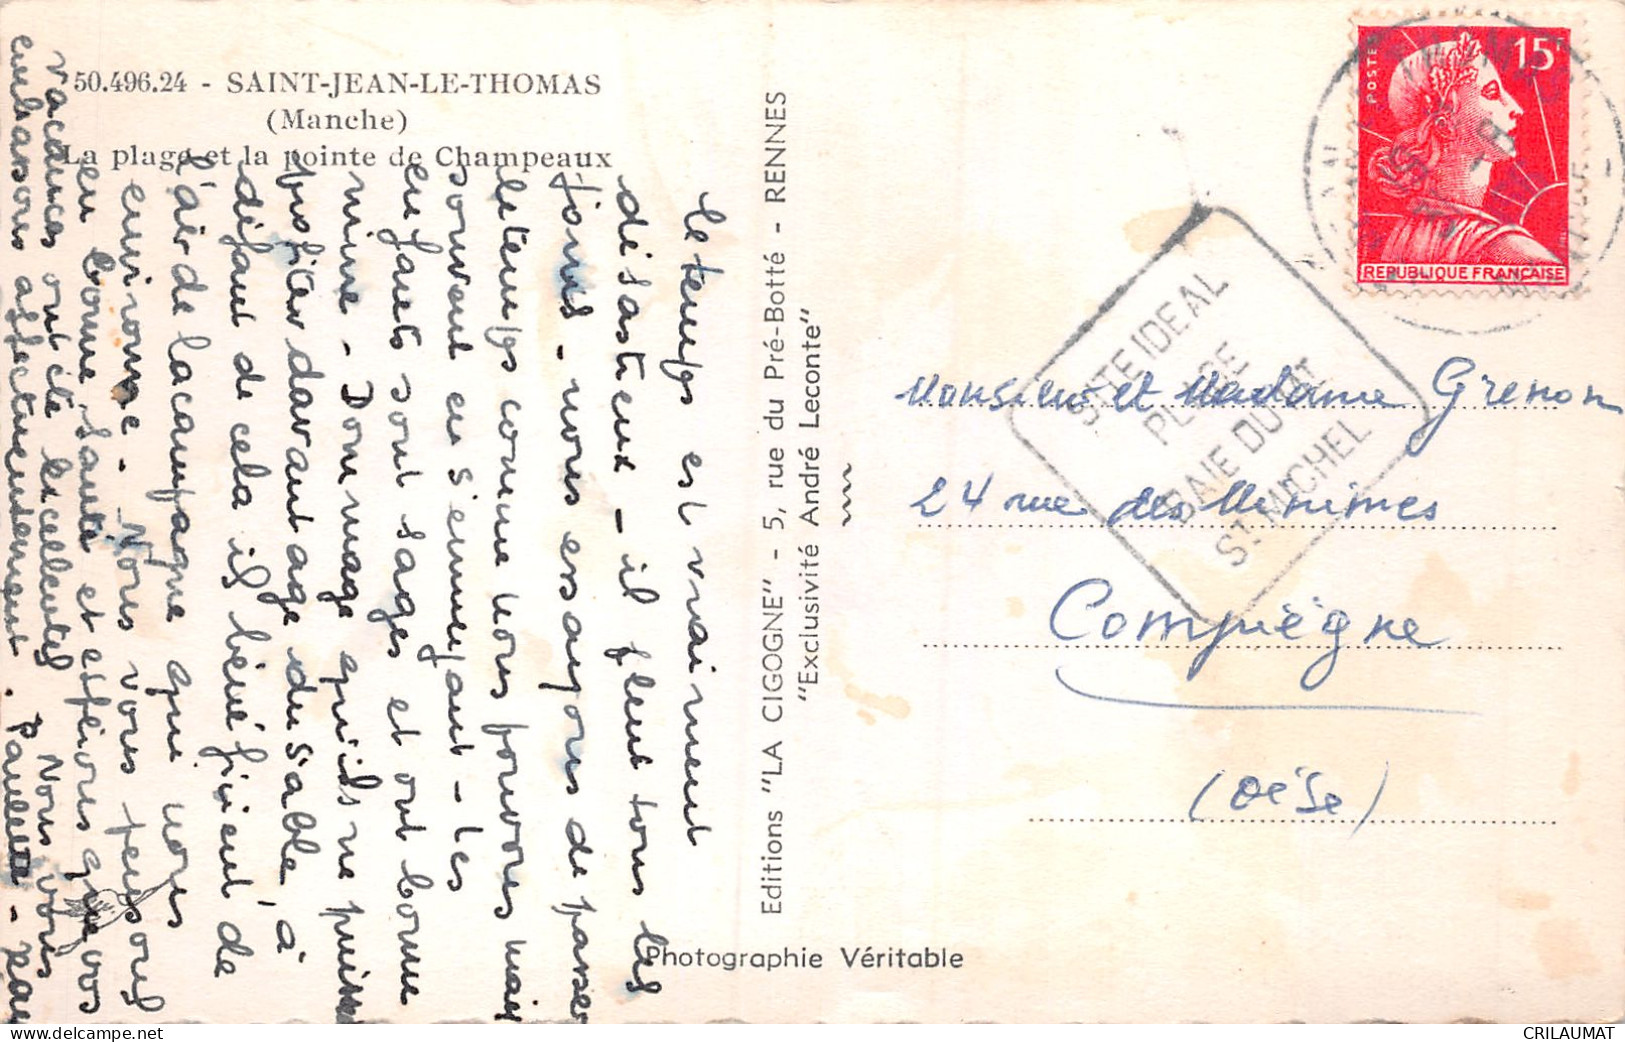 50.496.24 - SAINT-JEAN-LE-THOMAS
(Manche)
La plage et la pointe de Champeaux
le temps est vraiment
désastreux - il pleut tous les
jours - nous essayons de passer
le temps comme nous pouvons mais
souvent en s'ennuyant - les
enfants sont sages et ont bonne
mine - Dommage qu'ils ne puissent
profiter davantage du sable, à
défaut de cela ils bénéficient de
l'air de la campagne qui nous
environne - Nous vous pensons
en bonne santé et espérons que vos
vacances ont été excellentes Nous vous
embrassons affectueusement. Paulette -
Editions "LA CIGOGNE" - 5, rue du Pré-Botté - RENNES
"Exclusivité André Leconte"
Photographie Véritable
POSTES
15F
REPUBLIQUE FRANÇAISE
SITE IDEAL
PLAGE
BAIE DU Mt
St MICHEL
Monsieur et Madame Grenon
24 rue des Minimes
Compiègne
(Oise)
CRILAUMAT